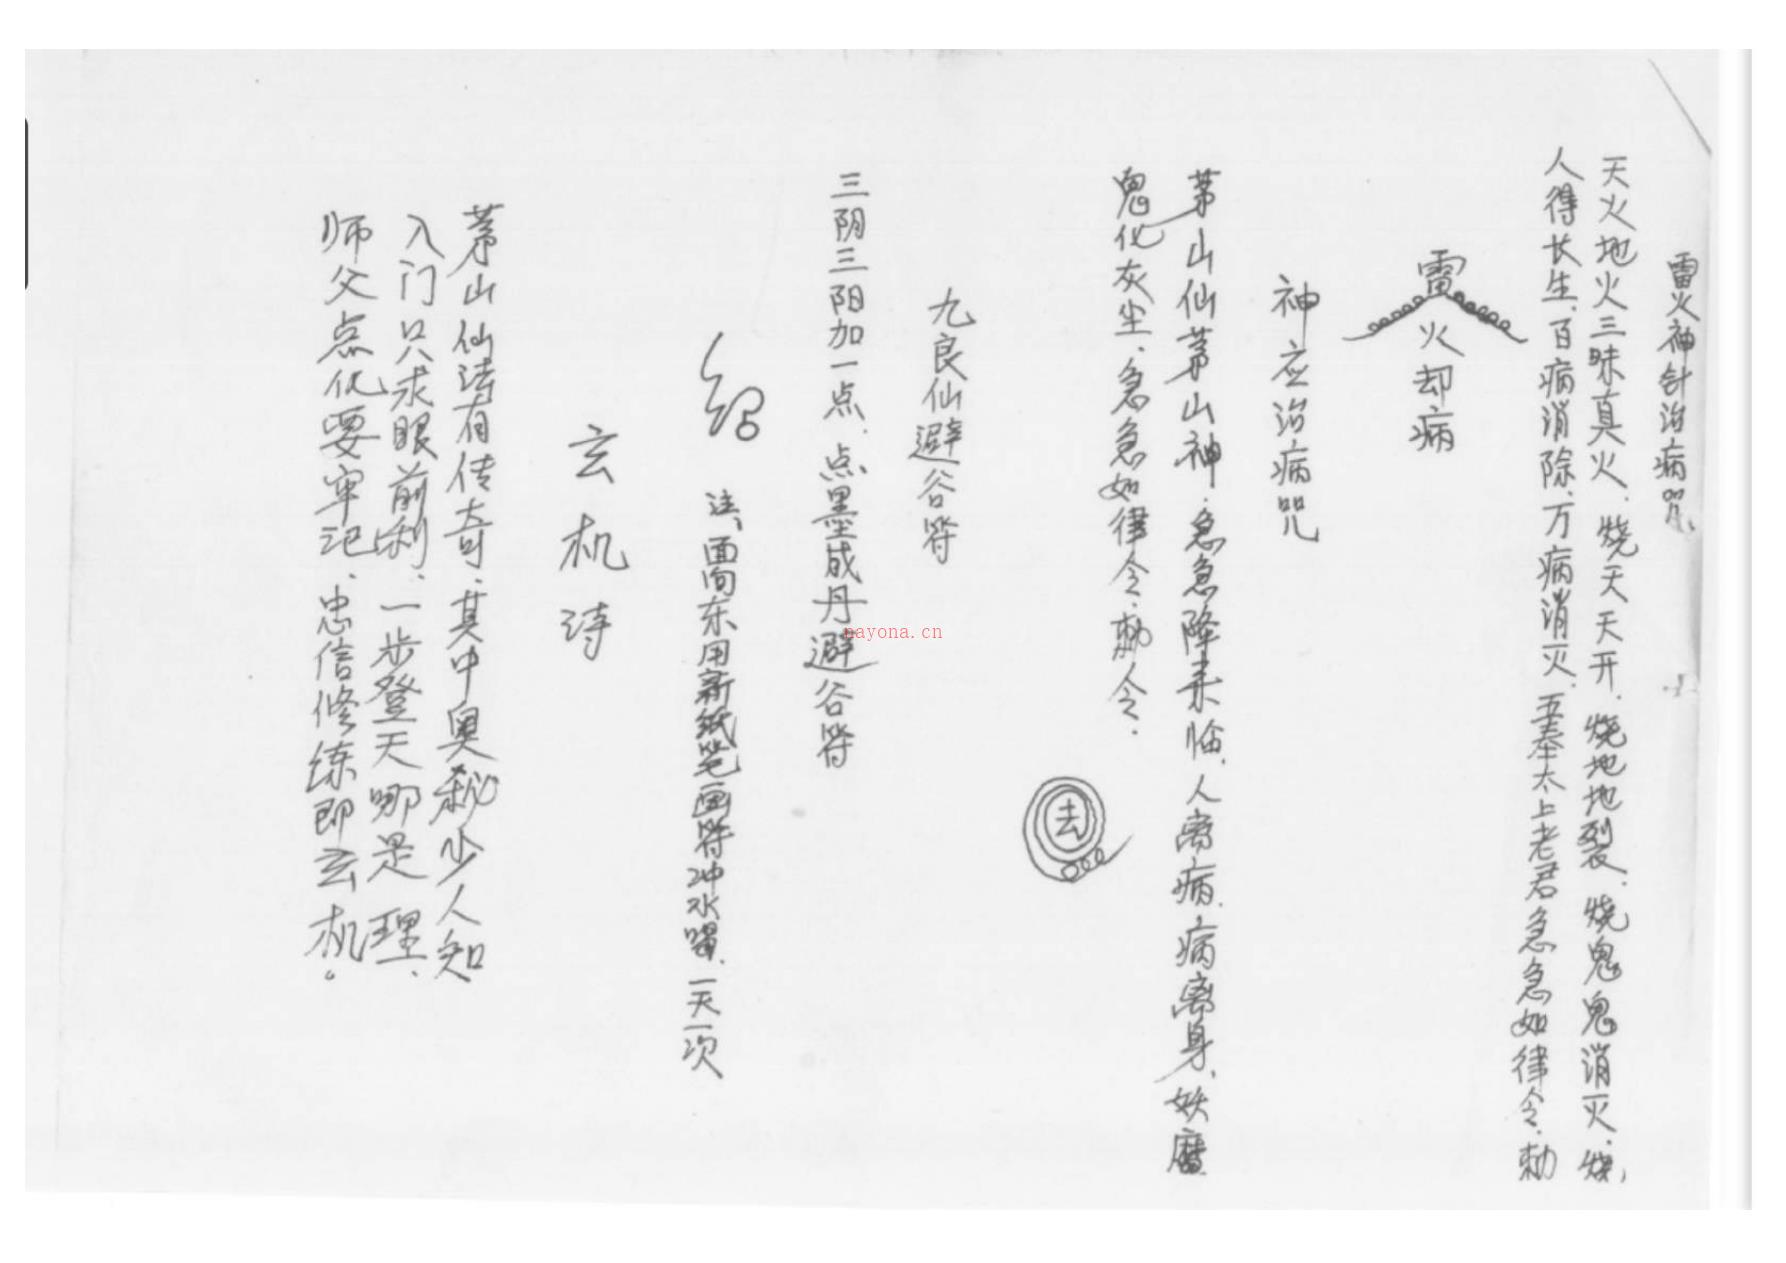 雷火神针治病咒
天火地火三昧真火、烧天天开、烧地地裂、烧鬼鬼消灭、烧
人得长生、百病消除、万病消灭、五奉太上老君急急如律令、勅
雷
火却病
神应治病咒
茅山仙茅山神、急急降来临、人离病、病离身、妖魔
鬼化灰尘、急急如律令、勅令、
去
九良仙避谷符
三阴三阳加一点、点墨成丹避谷符
法、面向东用新纸笔画符冲水喝、一天一次
玄机诗
茅山仙法有传奇、其中奥秘少人知
入门只求眼前利、一步登天哪是理、
师父点化要牢记、忠信修练即玄机。
nayona.cn